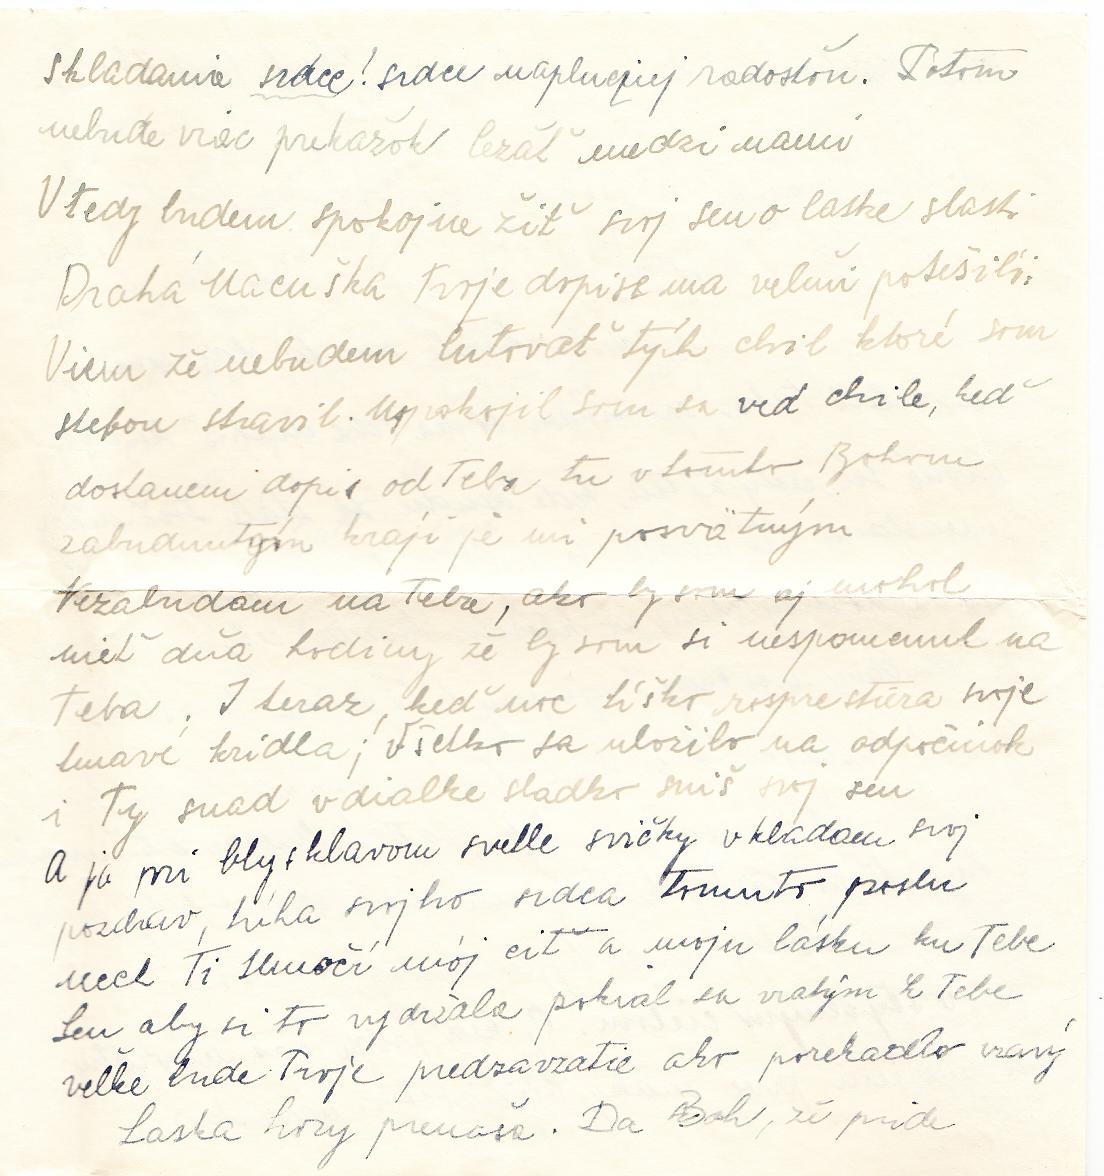 skladania srdce! srdce naplnenej radosťou. Potom
nebude viac prekažôk ležať medzi nami
Vtedy budem spokojne žiť svoj sen o laske slasti
Drahá Macuška tvoje dopise ma velmi potešili:
Viem že nebudem lutovať tých chvil ktoré som
stebou stravil. Uspokojil som sa veď chvile, keď
dostanem dopis od Teba tu v tomto Bohom
zabudnutým kraji je mi posvätným
Nezabudam na Tebe, ako by som aj mohol
niet dňa hodiny že by som si nespomenul na
Teba. I teraz, keď noc tíško rosprestiera svoje
tmavé kridla; Všetko sa uložilo na odpočinok
i Ty snad v dialke sladko sniš svoj sen
A ja pri blysklavom svetle svičky vkladam svoj
pozdrav, túha svojho srdca tomuto poslu
nech Ti tlmočí mój ciť a moju lásku ku Tebe
Len aby si to vydržala pokial sa vratým k Tebe
velke bude Tvoje predsavzatie ako porekadlo vravý
Laska hory prenaša. Da Boh, že pride